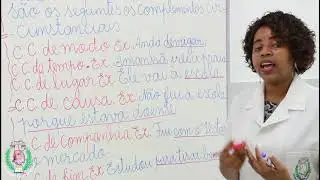 são os seguintes os complementos cir
cunstanciais
C C de modo Ex. Anda devagar
C C de tempo. Ex. Amanhã irei a praia
C C de lugar Ex Ele vai a escola
C C de causa. Ex Não fui a escola
porque estava doente
C de companhia Ex. Fui com o
mercado
C de fim. Ex Estudou para tirar